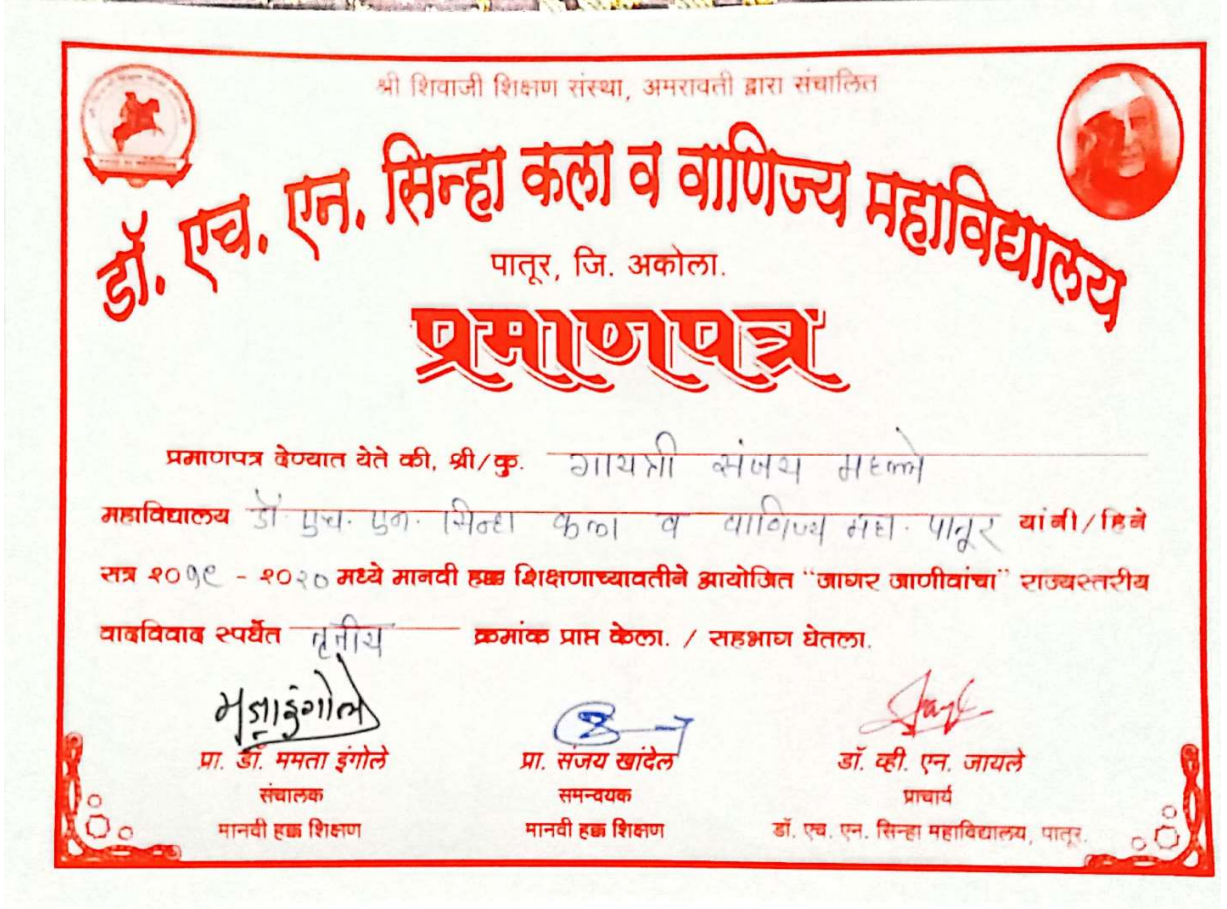 श्री शिवाजी शिक्षण संस्था, अमरावती द्वारा संचालित
डॉ. एच. एन. सिन्हा कला व वाणिज्य महाविद्यालय
पातूर, जि. अकोला.
प्रमाणपत्र
प्रमाणपत्र देण्यात येते की, श्री/कु. गायत्री संजय महल्ले
महाविद्यालय डॉ. एच. एन. सिन्हा कला व वाणिज्य महा. पातूर यांनी/हिने
सत्र २०१९ - २०२० मध्ये मानवी हक्क शिक्षणाच्यावतीने आयोजित "जागर जाणीवांचा" राज्यस्तरीय
वादविवाद स्पर्धेत तृतीय क्रमांक प्राप्त केला. / सहभाग घेतला.
प्रा. डॉ. ममता इंगोले प्रा. संजय खांदेल डॉ. व्ही. एन. जायले
संचालक समन्वयक प्राचार्य
मानवी हक्क शिक्षण मानवी हक्क शिक्षण डॉ. एच. एन. सिन्हा महाविद्यालय, पातूर.